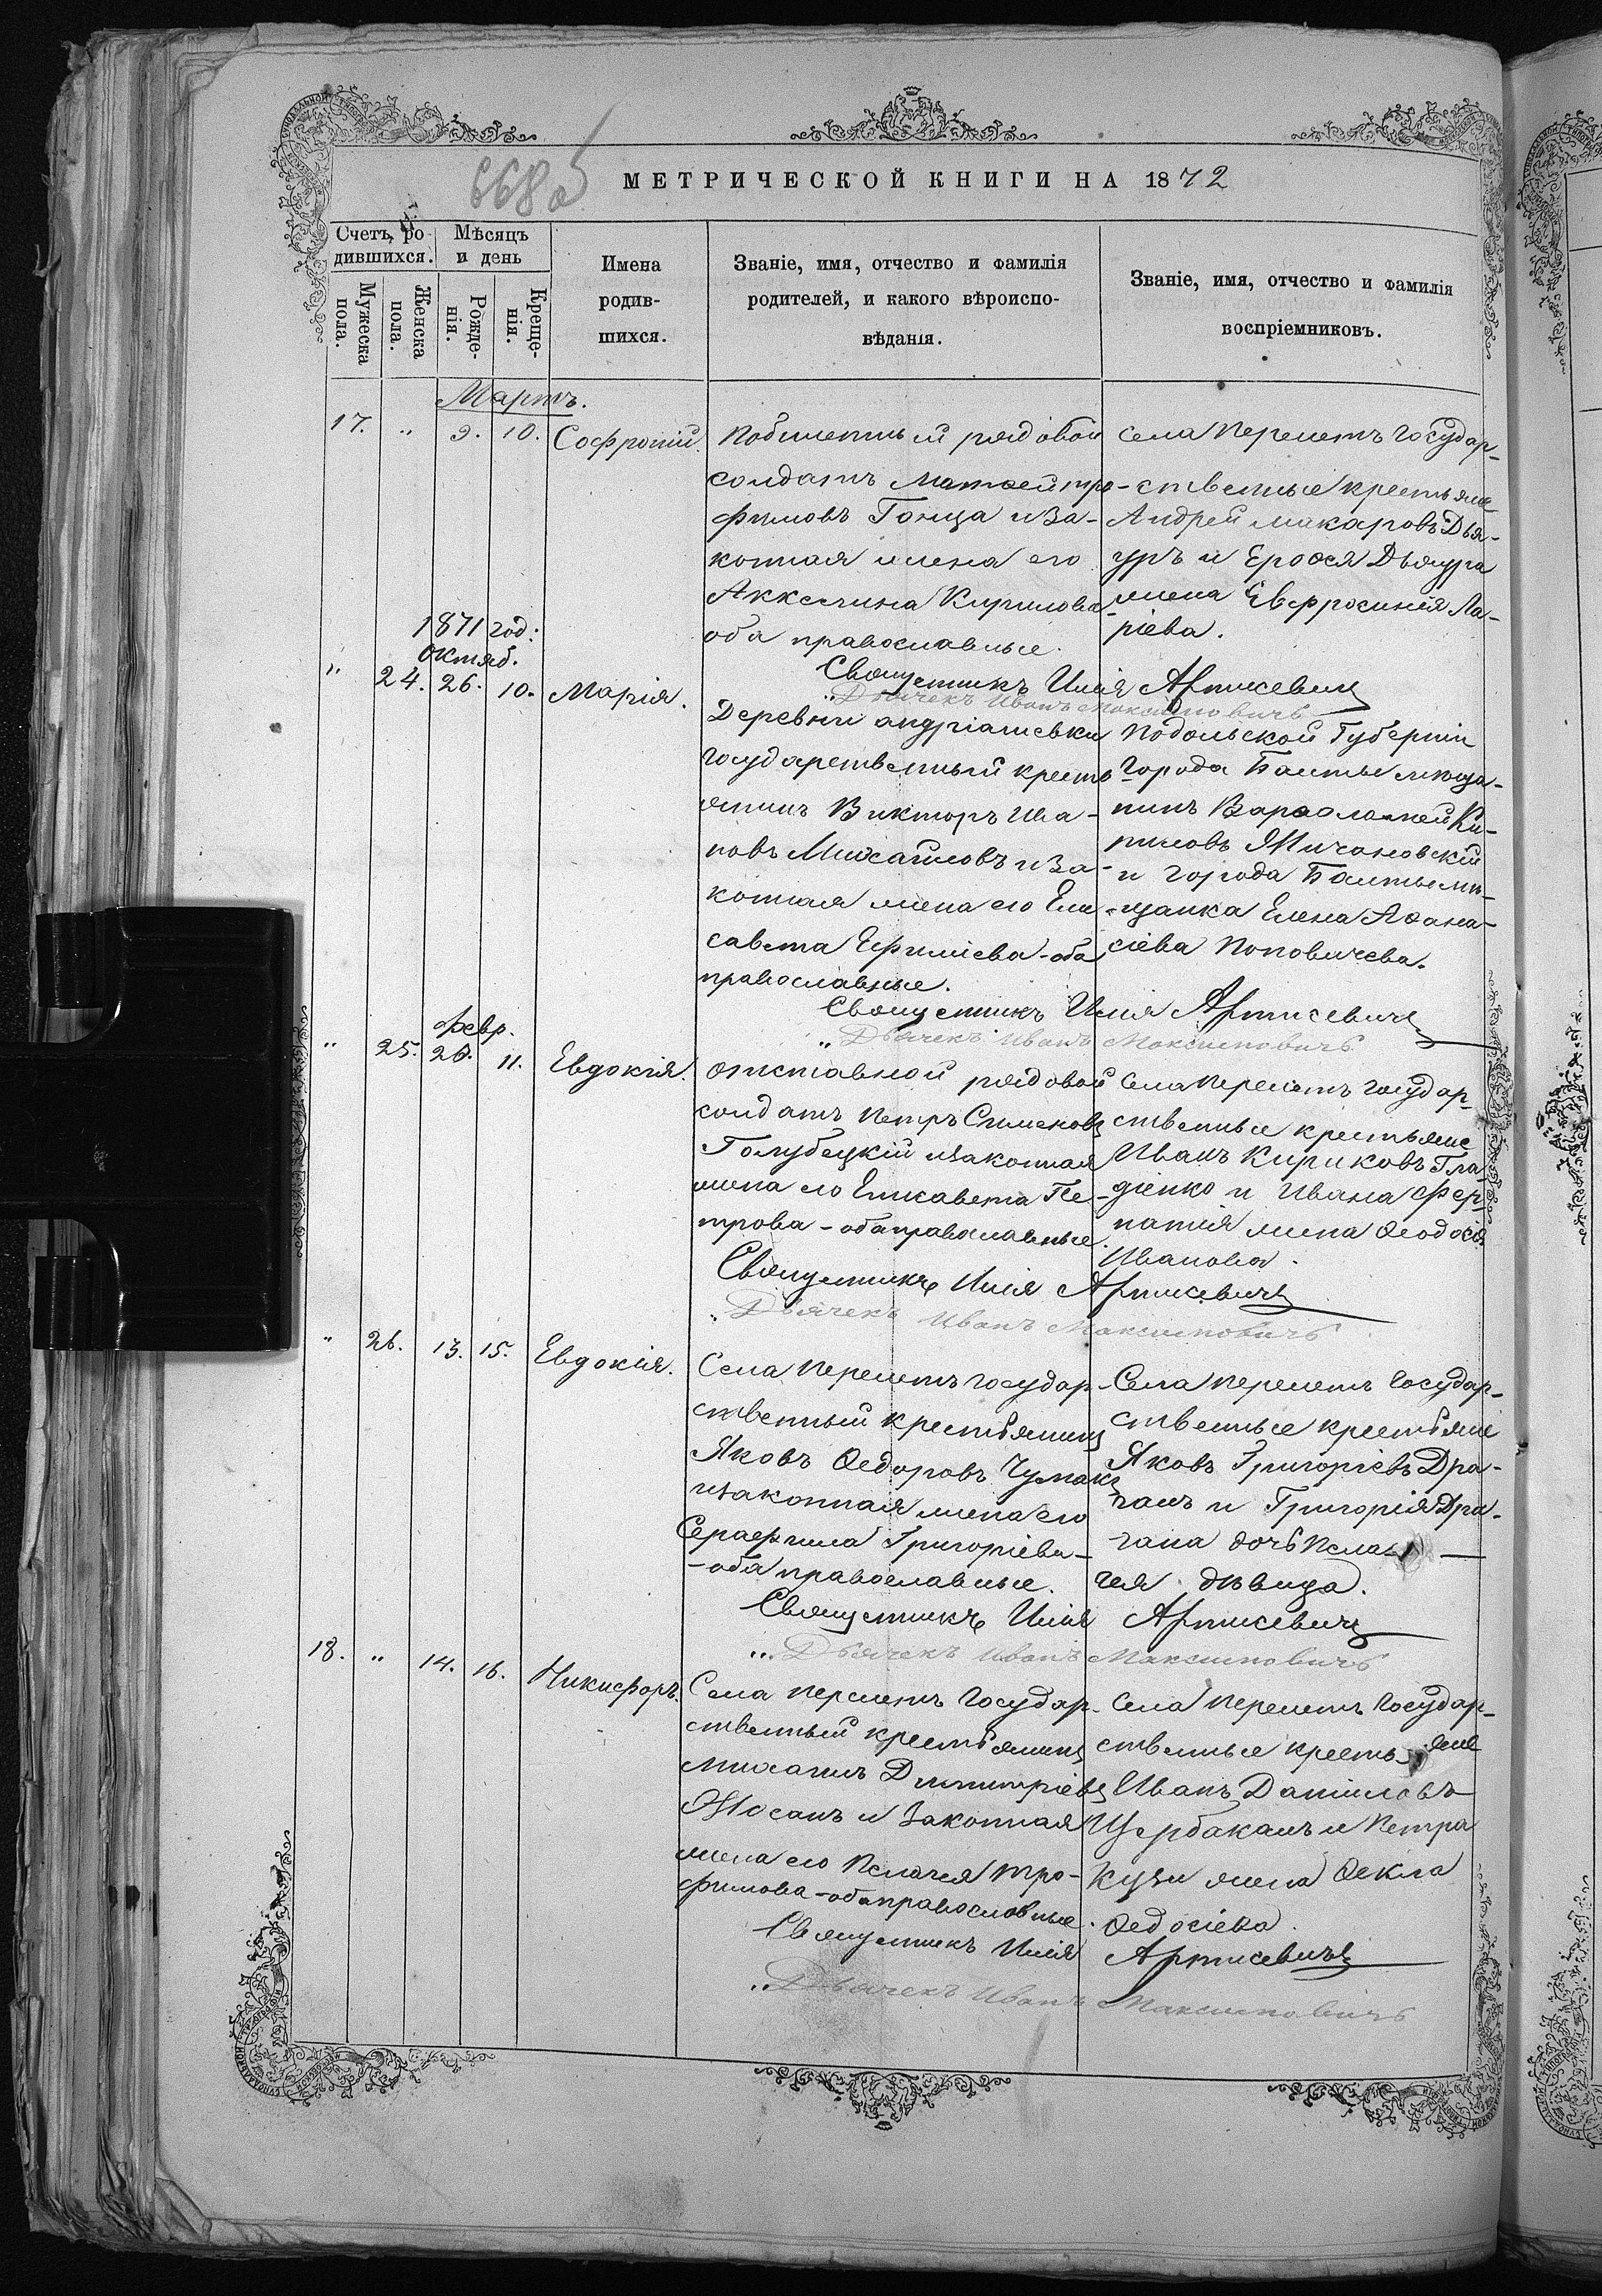 668об
МЕТРИЧЕСКОЙ КНИГИ НА 1872
Счетъ ро-
дившихся.
Мужеска
пола.
Женска
пола.
Мѣсяцъ
и день
Рожде-
нія.
Креще-
нія.
Имена
родив-
шихся.
Званіе, имя, отчество и фамилія
родителей, и какого вѣроиспо-
вѣданія.
Званіе, имя, отчество и фамилія
воспріемниковъ.
Мартъ.
17. " 9. 10. Софроній.
Побилетный рядовой
солдатъ Матѳей Тро-
фимовъ Гонца и за-
конная жена его
Аккелина Кирилова
оба православные.
Села Перелетъ Государ-
ственные крестьяне
Андрей Макаровъ Дья-
ур и Дьяура
жена Евфросинія Ла-
ріева.
Священникъ Илія Артисевичъ
" Дьячекъ Иванъ Максимовичъ
1871 год:
Октяб.
" 24. 26. 10. Марія.
Деревни Андріашевки
Государственный кресть
янинъ Викторъ Ива-
новъ Михайловъ и за-
конная жена его Ели-
савета Ефиміева - оба
православные.
Подольской Губерніи
Города Балты мѣща-
нинъ Варѳоломей Ки-
риловъ
и Города Балты мѣ-
щанка Елена Аѳана-
сіева Поповичева.
Священникъ Илія Артисевичъ
" Дьячекъ Иванъ Максимовичъ
Февр.
" 25. 26. 11. Евдокія.
Отставной рядовой
солдатъ Петръ Симеоновъ
Голубецкій и законная
жена его Елисавета Пе-
трова - оба православные.
Села Перелетъ Государ-
ственные крестьяне
Иванъ Кириковъ Гла
діенко и Ивана Фер-
натія жена Ѳеодосія
Иванова.
Священникъ Илія Артисевичъ
" Дьячекъ Иванъ Максимовичъ
" 26. 13. 15. Евдокія.
Села Перелетъ Государ-
ственный крестьянинъ
Яковъ Ѳедоровъ Чумакъ
и законная жена его
Серафима Григоріева-
- оба православные.
Села Перелетъ Государ-
ственные крестьяне
Яковъ Григоріевъ Дра-
ганъ и Григорія Дра-
гана дочь Пела-
гея дѣвица.
Священникъ Илія Артисевичъ
" Дьячекъ Иванъ Максимовичъ
18. " 14. 16. Никифоръ.
Села Перелетъ Государ-
ственный крестьянинъ
Михаилъ Димитріевъ
Жосанъ и законная
жена его Пелагея Тро-
фимова - оба православные.
Села Перелетъ Государ-
ственные крестьяне
Иванъ Даниловъ
Щербаканъ и Петра
Кузи жена Ѳекла
Ѳедосіева.
Священникъ Илія Артисевичъ
" Дьячекъ Иванъ Максимовичъ